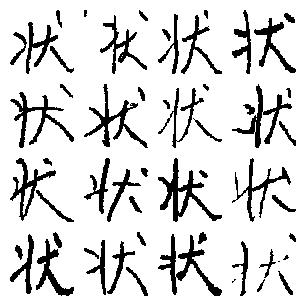 状状状状
状状状状
状状状状
状状状状